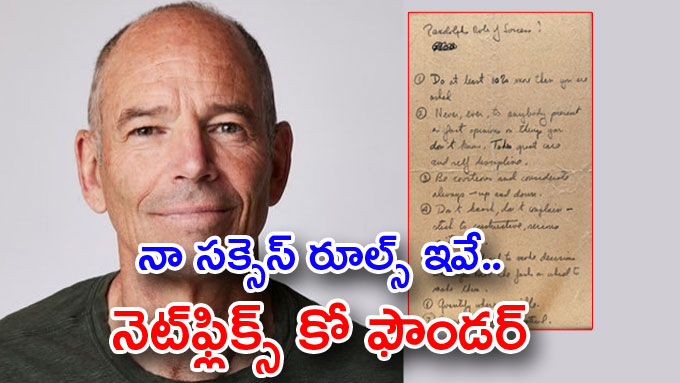 Randolphs Rules of Success!
① Do at least 10% more than you are
asked
② Never, ever, to anybody present
as fact opinions on things you
don't know. Takes great care
and self discipline.
③ Be courteous and considerate
always - up and down.
④ Don't knock, don't complain -
stick to constructive, serious
to make decisions
facts on which to
make them.
Quantify where
నా సక్సెస్ రూల్స్ ఇవే..
నెట్‌ఫ్లిక్స్ కో ఫౌండర్